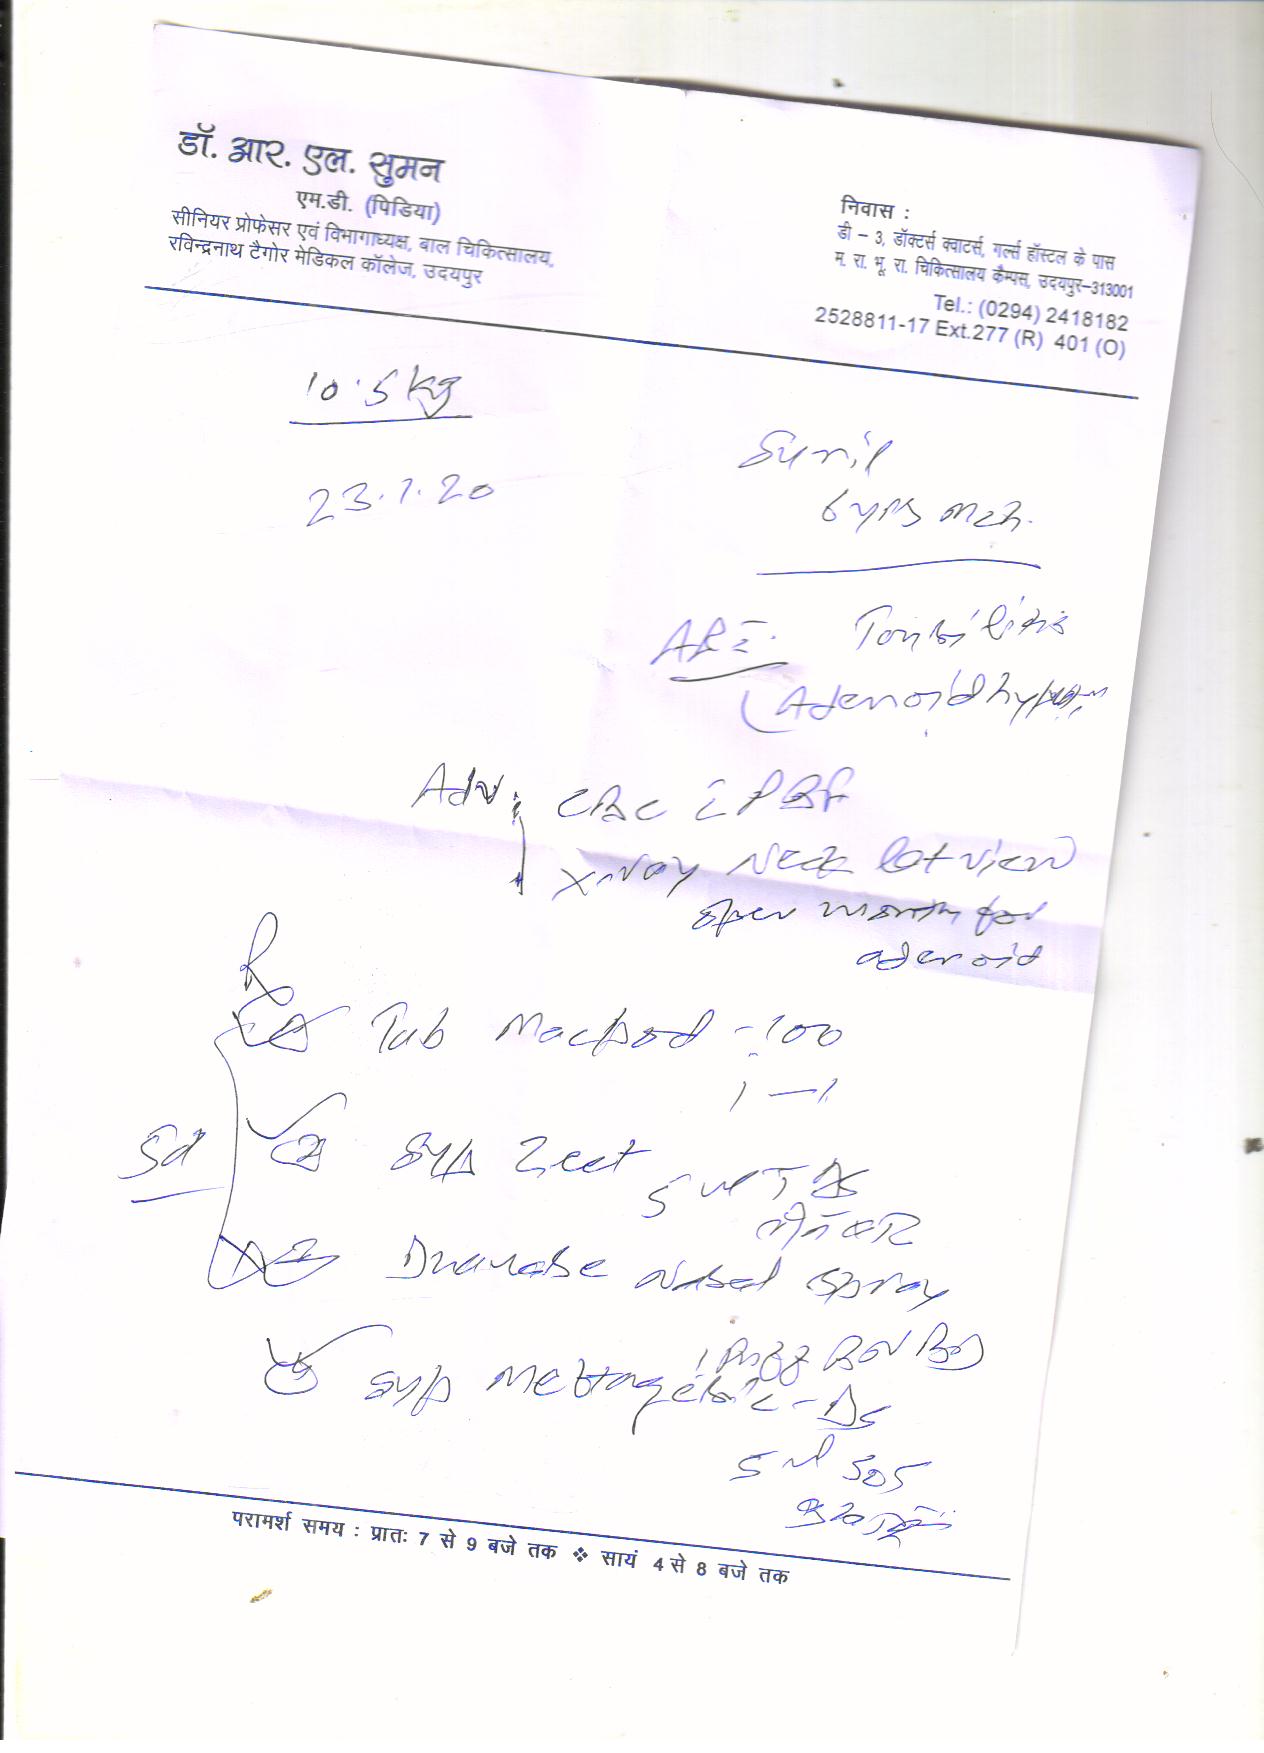 डॉ. आर. एल. सुमन
एम.डी. (पिडिया)
सीनियर प्रोफेसर एवं विभागाध्यक्ष, बाल चिकित्सालय,
रविन्द्रनाथ टैगोर मेडिकल कॉलेज, उदयपुर
निवास :
डी – 3, डॉक्टर्स क्वाटर्स, गर्ल्स हॉस्टल के पास
म. रा. भू. रा. चिकित्सालय कैम्पस, उदयपुर–313001
Tel.: (0294) 2418182
2528811-17 Ext.277 (R) 401 (O)
10.5 kg
23.1.20
Sunil
6 yrs mch.
ARI. Tonsilitis
(Adenoid
Adv: CBC PBF
X-ray Neck lat view
open mouth for
adenoid
R
Tab Macpod - 100
1 — 1
5d
Syp Zeet
5 ml
Nasal spray
1 Puff BD
Syp - DS
5 ml SOS
परामर्श समय : प्रातः 7 से 9 बजे तक ❖ सायं 4 से 8 बजे तक